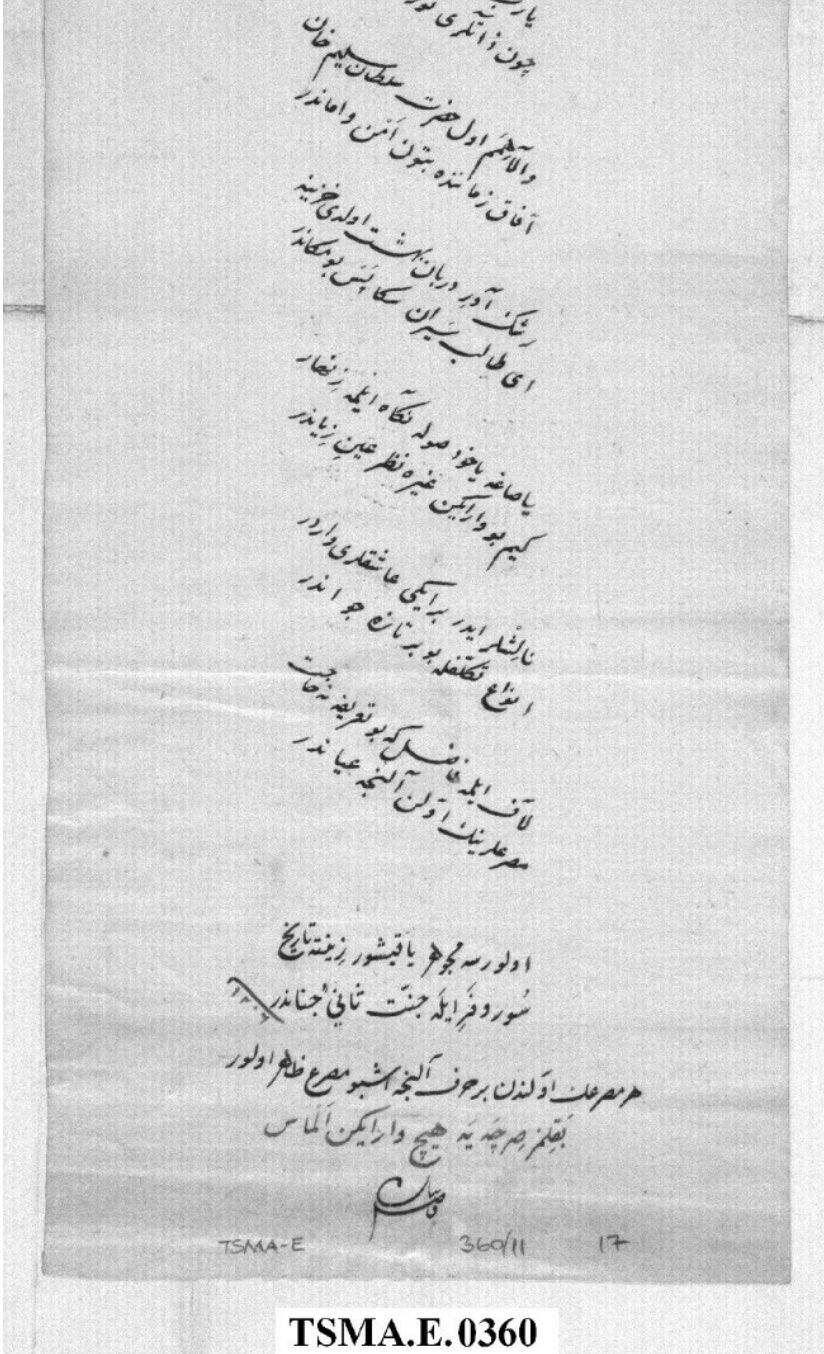 یار
چون ذاتکری
والا همم اول حضرت سلطان سلیم خان
آفاق زماننده بتون امن و اماندر
رشک آور دربان بهشت اولدی خزینه
ای طالب سیران سکا بس بو مکاندر
یا صاغه یاخود صوله نگاه ایلمه زنهار
کیم بو وار ایکن غیره نظر عین زیاندر
نالشلر ایدر بر ایکی عاشقلری واردر
انواع تکلفله بو بر تازه جواندر
لاف ایلمه فاضل که بو تعریفه نه حاجت
مصرعلرینک اولن آلنجه عیاندر
اولورسه مجوهر یاقیشور زینته تاریخ
سور و فر ایله جنت ثانئ جناندر
١٢٠٦
هر مصرعک اولندن بر حرف آلنجه اشبو مصرع ظاهر اولور
بقلمز صرچه یه هیچ وار ایکن الماس
فاضل
TSMA-E 360/11 17
TSMA.E.0360